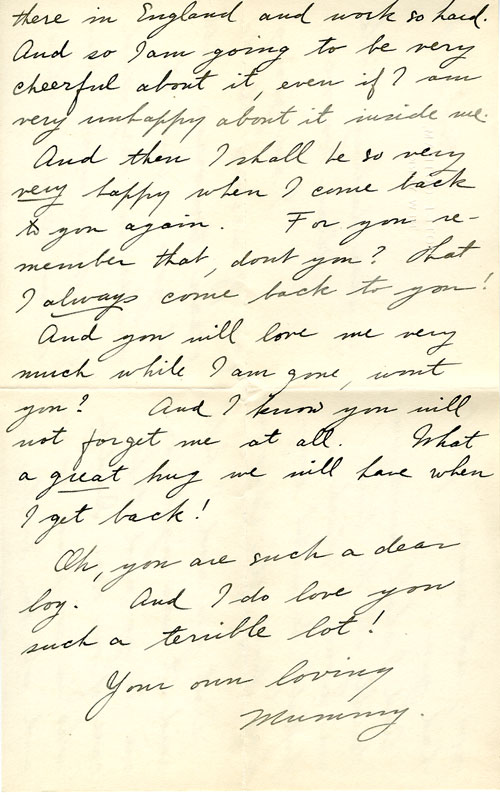 there in England and work so hard.
And so I am going to be very
cheerful about it, even if I am
very unhappy about it inside me.
And then I shall be so very
very happy when I come back
to you again. For you re-
member that, dont you? That
I always come back to you!
And you will love me very
much while I am gone, wont
you? And I know you will
not forget me at all. What
a great hug we will have when
I get back!
Oh, you are such a dear
boy. And I do love you
such a terrible lot!
Your own loving
Mummy.